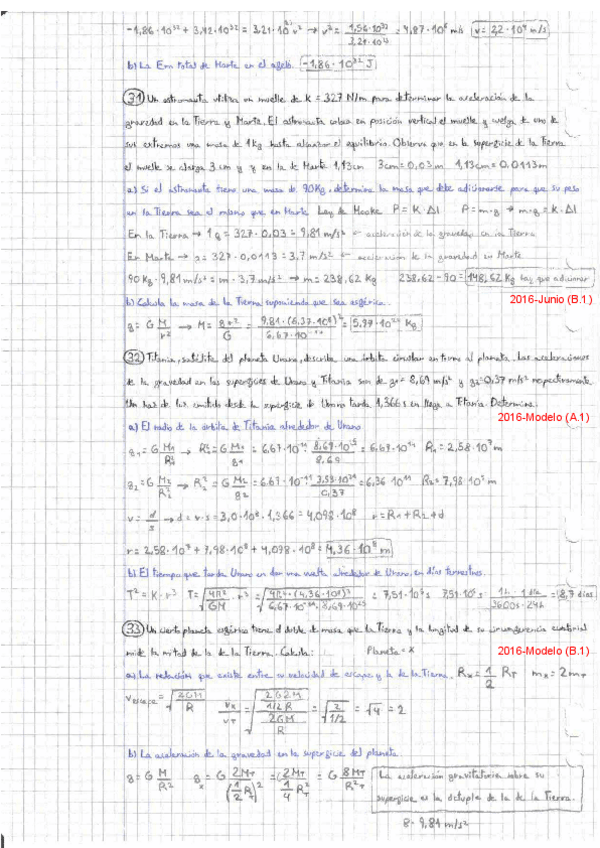 -1,86·10³² + 3,42·10³² = 3,21·10²³ v² → v² = 1,56·10³² / 3,21·10²³ = 4,87·10⁸ m/s v = 2,2·10⁴ m/s
b) La Em total de Marte en el afelio. -1,86·10³² J
31 Un astronauta utiliza un muelle de K = 327 N/m para determinar la aceleración de la
gravedad en la Tierra y Marte. El astronauta coloca en posición vertical el muelle y cuelga de uno de
sus extremos una masa de 1 kg hasta alcanzar el equilibrio. Observa que en la superficie de la Tierra
el muelle se alarga 3 cm y en la de Marte 1,13 cm 3cm = 0,03 m 1,13cm = 0.0113 m
a) Si el astronauta tiene una masa de 90 Kg, determine la masa que debe adicionarse para que su peso
en la Tierra sea el mismo que en Marte Ley de Hooke P = K·Δl P = m·g → m·g = K·Δl
En la Tierra → 1 g = 327·0,03 = 9,81 m/s² ← aceleración de la gravedad en la Tierra
En Marte → g = 327·0,0113 = 3,7 m/s² ← aceleración de la gravedad en Marte
90 kg·9,81 m/s² = m·3,7 m/s² → m = 238,62 Kg 238,62 - 90 = 148,62 Kg hay que adicionar
2016-Junio (B.1)
b) Calcula la masa de la Tierra suponiendo que sea esférica.
g = G M/r² → M = g r²/G = 9,81·(6,37·10⁶)² / 6,67·10⁻¹¹ = 5,97·10²⁴ kg
32 Titania, satélite del planeta Urano, describe una órbita circular en torno al planeta. Las aceleraciones
de la gravedad en las superficies de Urano y Titania son de g₁ = 8,69 m/s² y g₂ = 0,37 m/s² respectivamente.
Un haz de luz emitido desde la superficie de Urano tarda 1,366 s en llegar a Titania. Determine.
2016-Modelo (A.1)
a) El radio de la órbita de Titania alrededor de Urano
v = d/s → d = v·s = 3,0·10⁸·1,366 = 4,098·10⁸ r = R₁ + R₂ + d
r = 2,58·10⁷ + 7,98·10⁵ + 4,098·10⁸ = 4,36·10⁸ m
b) El tiempo que tarda en dar una vuelta alrededor de Urano, en días terrestres.
T² = K·r³
33 Un cierto planeta esférico tiene el doble de masa que la Tierra y la longitud de su circunferencia ecuatorial
mide la mitad de la de la Tierra. Calcula: Planeta = X
2016-Modelo (B.1)
a) La relación que existe entre su velocidad de escape y la de la Tierra. Rx = 1/2 RT mx = 2mT
v escape = √(2GM/R) vx/vT = √(2G2M / (1/2 R)) / √(2GM/R) = √(2 / (1/2)) = √4 = 2
b) La aceleración de la gravedad en la superficie del planeta
g = G M/R² gx = G 2MT / (1/2 RT)² = G 2MT / (1/4 RT²) = G 8MT / RT²
La aceleración gravitatoria sobre su
superficie es la óctuple de la de la Tierra.
8·9,81 m/s²